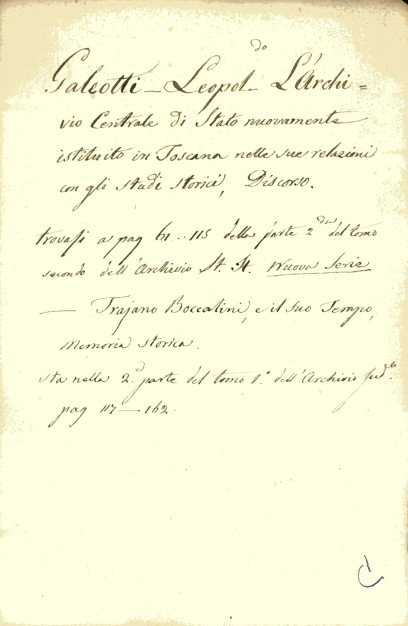 Galeotti – Leopol.do L'Archi=
vio Centrale di Stato nuovamente
istituito in Toscana nelle sue relazioni
con gli studi storici, Discorso.
trovasi a pag 61..115 della parte 2.da del tomo
secondo dell'Archivio St. It. Nuova Serie
— Trajano Boccalini, e il suo Tempo,
Memoria storica.
sta nella 2.a parte del tomo 1.° dell'Archivio sud.o
pag 117—162